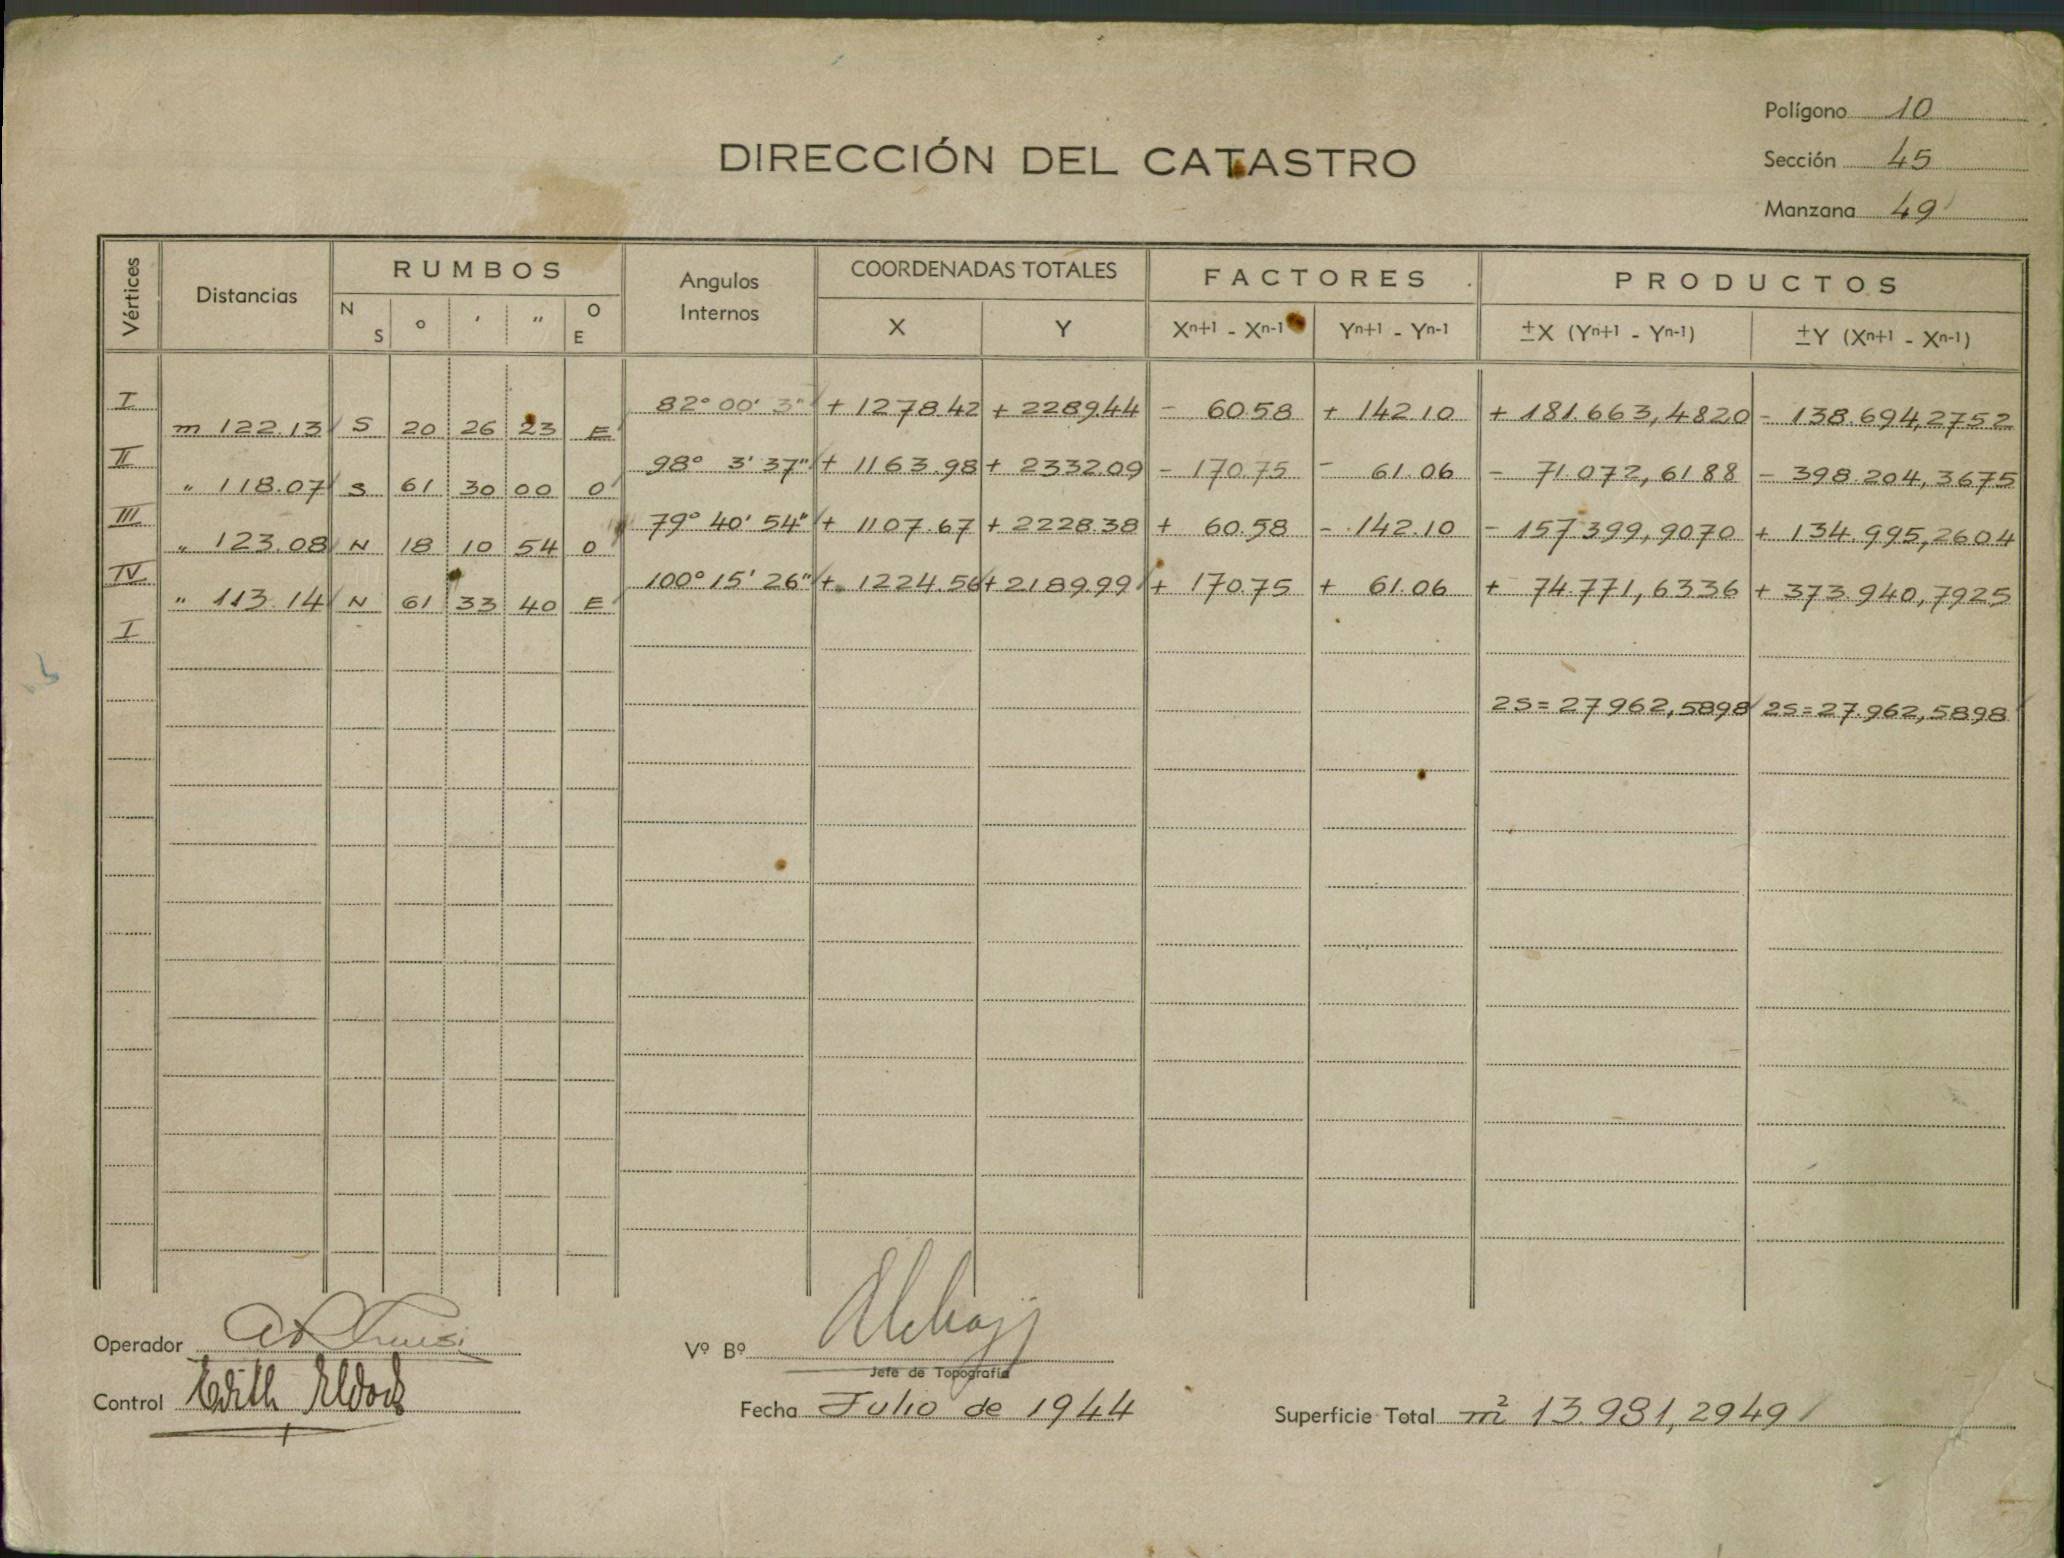 Polígono 10
DIRECCIÓN DEL CATASTRO
Sección 45
Manzana 49
Vértices Distancias RUMBOS Angulos Internos COORDENADAS TOTALES FACTORES PRODUCTOS
N S ° ' " O E X Y Xn+1 - Xn-1 Yn+1 - Yn-1 ±X (Yn+1 - Yn-1) ±Y (Xn+1 - Xn-1)
I 82° 00' 3" + 1278.42 + 2289.44 - 60.58 + 142.10 + 181.663,4820 - 138.694,2752
m 122.13 S 20 26 23 E
II 98° 3' 37" + 1163.98 + 2332.09 - 170.75 - 61.06 - 71.072,6188 - 398.204,3675
" 118.07 S 61 30 00 O
III 79° 40' 54" + 1107.67 + 2228.38 + 60.58 - 142.10 - 157.399,9070 + 134.995,2604
" 123.08 N 18 10 54 O
IV 100° 15' 26" + 1224.56 + 2189.99 + 170.75 + 61.06 + 74.771,6336 + 373.940,7925
" 113.14 N 61 33 40 E
I
2S = 27962,5898 2S = 27.962,5898
Operador
Vº Bº
Jefe de Topografía
Control Edith
Fecha Julio de 1944
Superficie Total m² 13981,2949